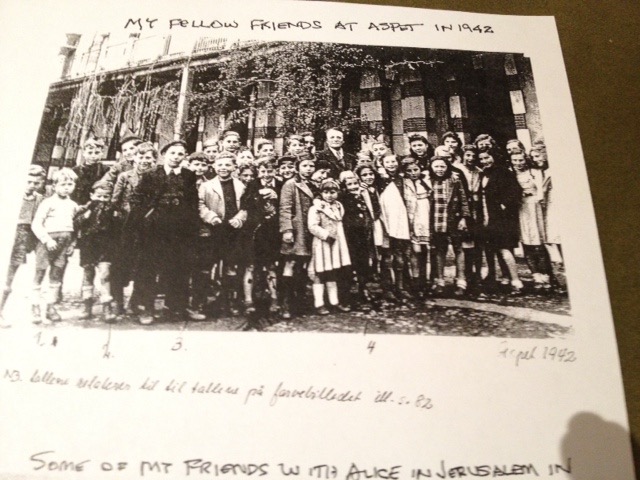 MY FELLOW FRIENDS AT ASPET IN 1942
1.
2.
3.
4
Aspet 1942
NB. tallene relaterer til til tallene på farvebilledet ill. s. 82
SOME OF MY FRIENDS WITH ALICE IN JERUSALEM IN